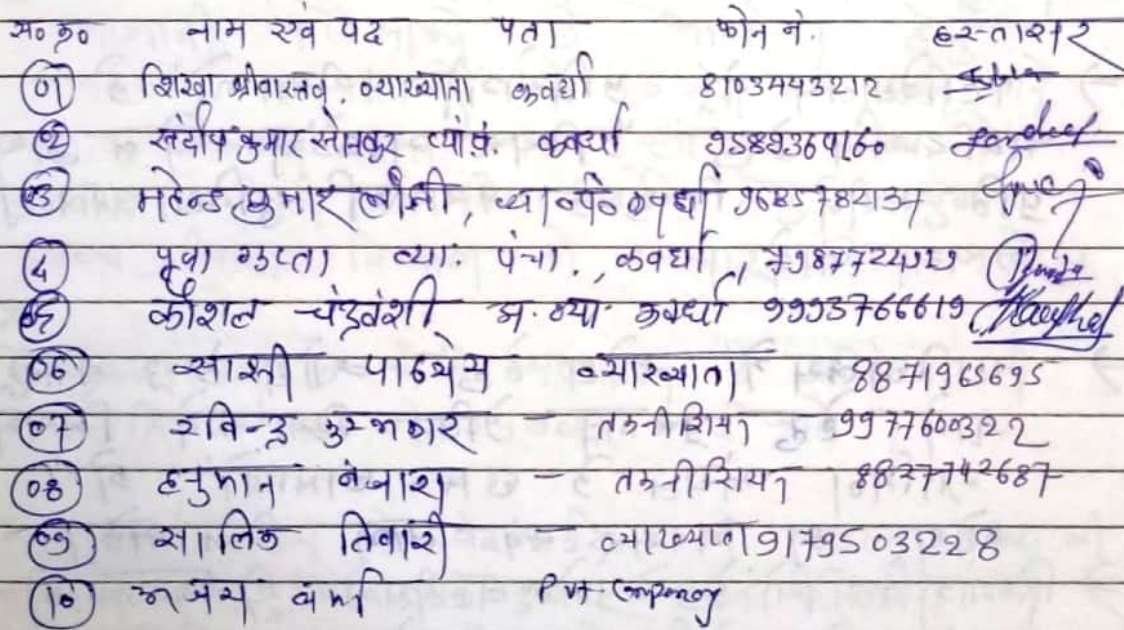 स० क्र० नाम एवं पद पता फोन नं. हस्ताक्षर
01 शिखा श्रीवास्तव, व्याख्याता कवर्धा 8103443212
02 संदीप कुमार सोमकुर कवर्धा 9589369160 Sandeep
03 महेन्द्र कुमार कवर्धा 9685782137
04 पूर्वा गुप्ता व्या. पंचा., कवर्धा, 7987724929
05 कौशल चंद्रवंशी अ. व्या. कवर्धा 9993766619 Kaushal
06 साक्षी पाठ्येय व्याख्याता 8871965695
07 रविन्द्र कुम्भकार - तकनीशियन 9977600322
08 हनुमान - तकनीशियन 8827742687
09 सालिक तिवारी - व्याख्याता 9179503228
10 वर्मा Pvt. Company